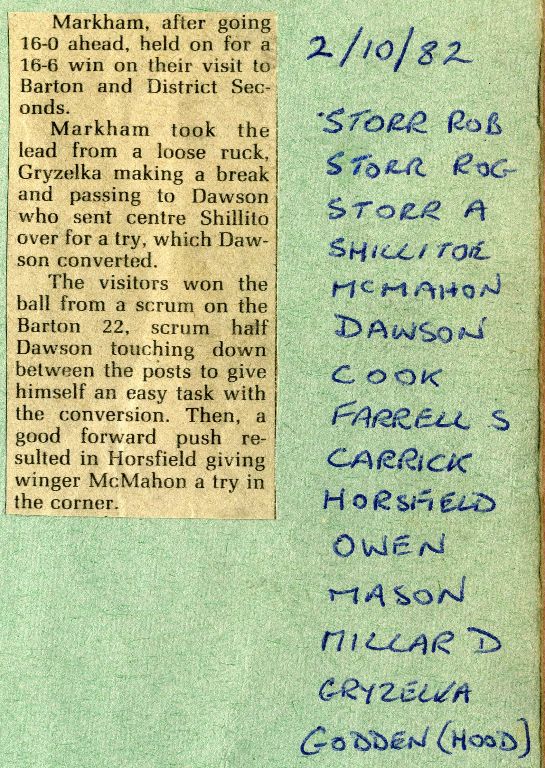 Markham, after going
16-0 ahead, held on for a
16-6 win on their visit to
Barton and District Sec-
onds.
Markham took the
lead from a loose ruck,
Gryzelka making a break
and passing to Dawson
who sent centre Shillito
over for a try, which Daw-
son converted.
The visitors won the
ball from a scrum on the
Barton 22, scrum half
Dawson touching down
between the posts to give
himself an easy task with
the conversion. Then, a
good forward push re-
sulted in Horsfield giving
winger McMahon a try in
the corner.
2/10/82
STORR ROB
STORR ROG
STORR A
SHILLITOE
MCMAHON
DAWSON
COOK
FARRELL S
CARRICK
HORSFIELD
OWEN
MASON
MILLAR D
GRYZELKA
GODDEN (HOOD)